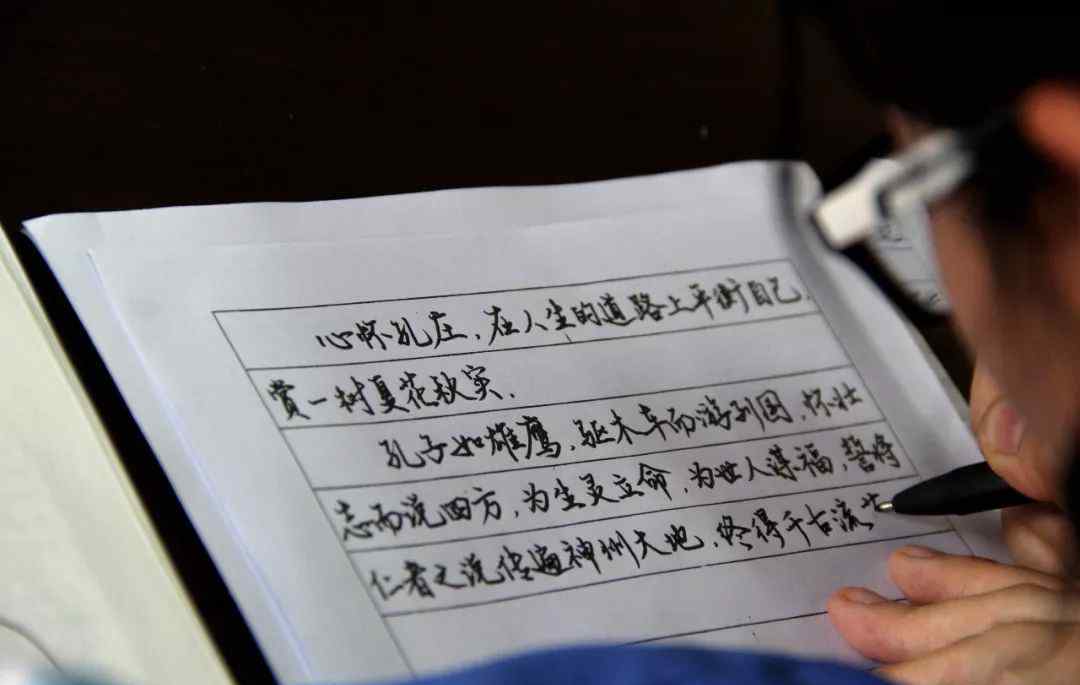 心怀孔庄，在人生的道路上平衡自己，
赏一树夏花秋实。
孔子如雄鹰，驱木车而游列国，怀壮
志而说四方，为生灵立命，为世人谋福，誓将
仁者之说传遍神州大地，终得千古流